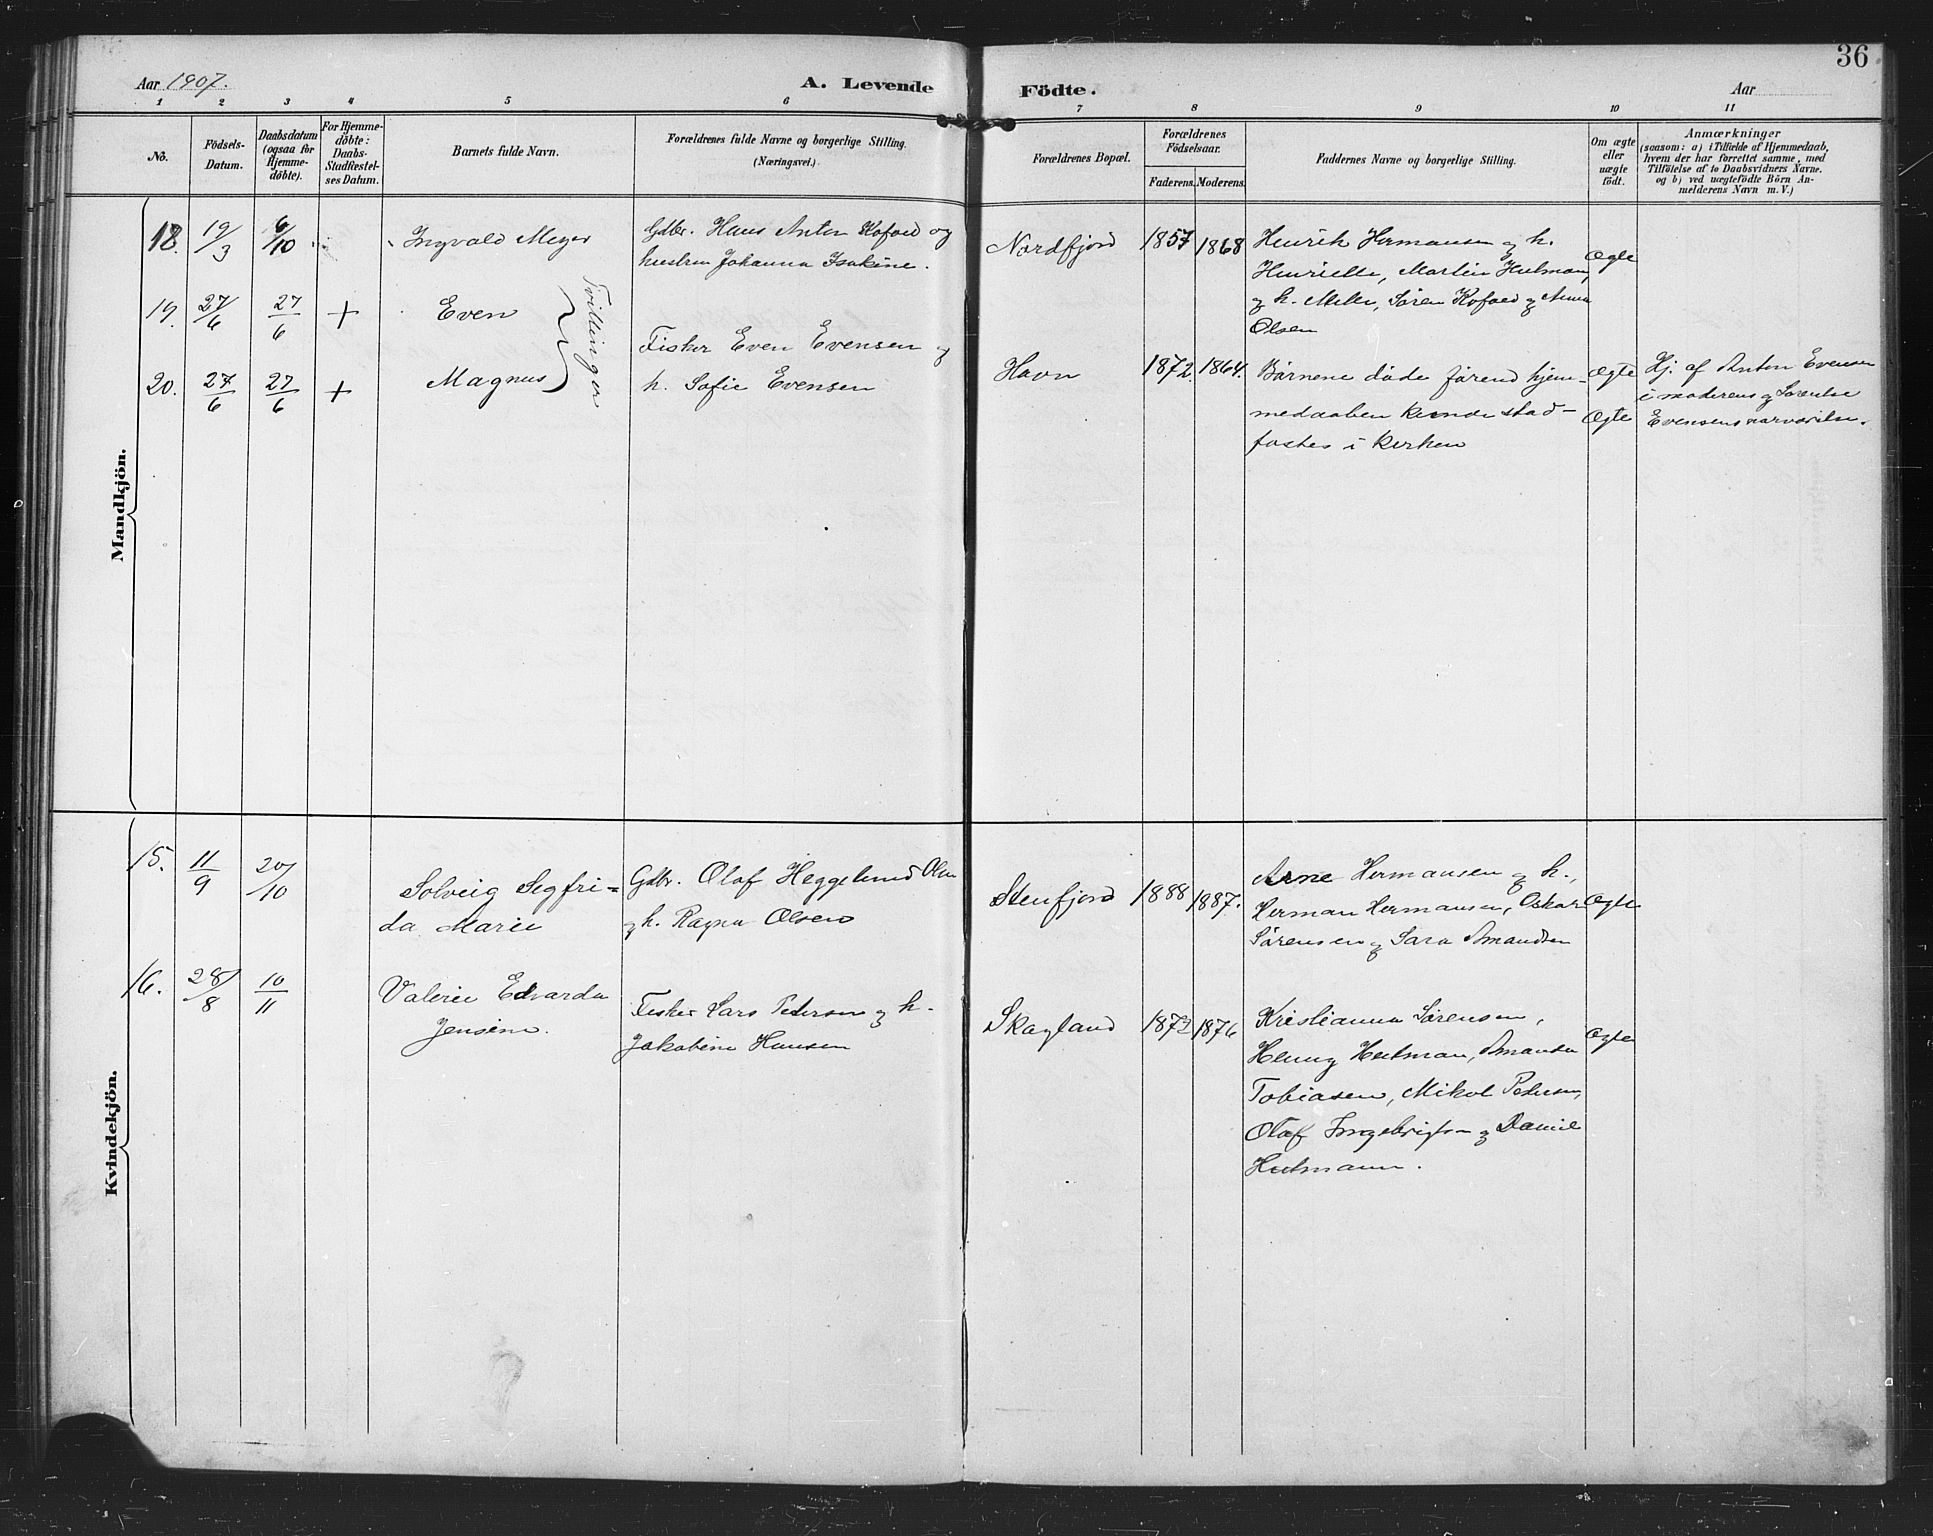 36
Aar 1907.
A. Levende Födte.
Aar
1 2 3 4 5 6 7 8 9 10 11
No.
Födsels-Datum.
Daabsdatum (ogsaa for Hjemme-döbte).
For Hjemme-döbte: Daabs-Stadfæstel-ses Datum.
Barnets fulde Navn.
Forældrenes fulde Navne og borgerlige Stilling.
(Næringsvei.)
Forældrenes Bopæl.
Forældrenes Födselsaar.
Faderens. Moderens.
Faddernes Navne og borgerlige Stilling.
Om ægte eller uægte födt.
Anmærkninger
(saasom: a) i Tilfælde af Hjemmedaab,
hvem der har forrettet samme, med
Tilföielse af to Daabsvidners Navne.
og b) ved uægtefödte Börn An-
melderens Navn m. V.)
Mandkjön.
18. 19/3 6/10 Ingvald Meyer
Gdbr. Hans Anton Kofoed og
hustru Johanna Isakine.
Nordfjord 1857 1868
Henrik Hermansen og h.
Henriette, Martin Hutman,
og h. Mille, Søren Kofoed og Anna
Olsen
Ægte
19. 27/6 27/6 + Even
Tvillinger
20. 27/6 27/6 + Magnus
Fisker Even Evensen og
h. Sofie Evensen
Havn 1872. 1864.
Børnene døde førend hjem-
medaaben kunde stad-
fæstes i kirken
Ægte
Ægte
Hj. af Anton Evensen
i moderens og Sørentse
Evensens nærværelse.
Kvindekjön.
15. 11/9 20/10 Solveig Segfri=
da Marie
Gdbr. Olaf Heggelund Olsen
og h. Ragna Olsen
Stenfjord 1888 1887.
Arne Hermansen og h.,
Herman Hermansen, Oskar
Sørensen og Sara Amandsen
Ægte
16. 28/8 10/11 Valerie Edvarda
Jensine.
Fisker Lars Pedersen og h.
Jakobine Hansen
Skagland 1873 1876
Kristianna Sørensen,
Henny Hutman, Amanda
Tobiasen, Mikol Pedersen,
Olaf Ingebrigtsen og Daniel
Hutmann.
Ægte